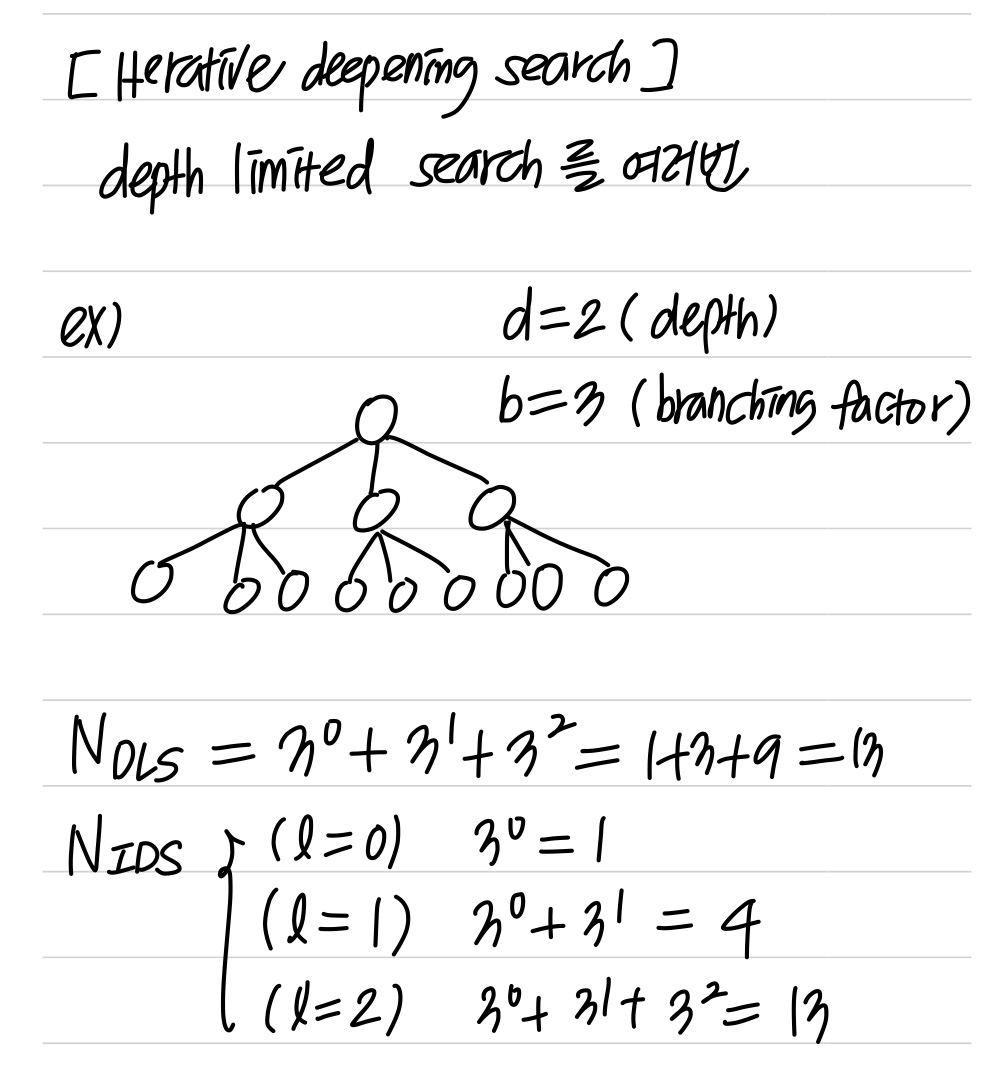 [Iterative deepening search]
depth limited search 를 여러번
ex)
d=2 (depth)
b=3 (branching factor)
N_DLS = 3⁰ + 3¹ + 3² = 1+3+9 = 13
N_IDS { (l=0) 3⁰ = 1
(l=1) 3⁰ + 3¹ = 4
(l=2) 3⁰ + 3¹ + 3² = 13